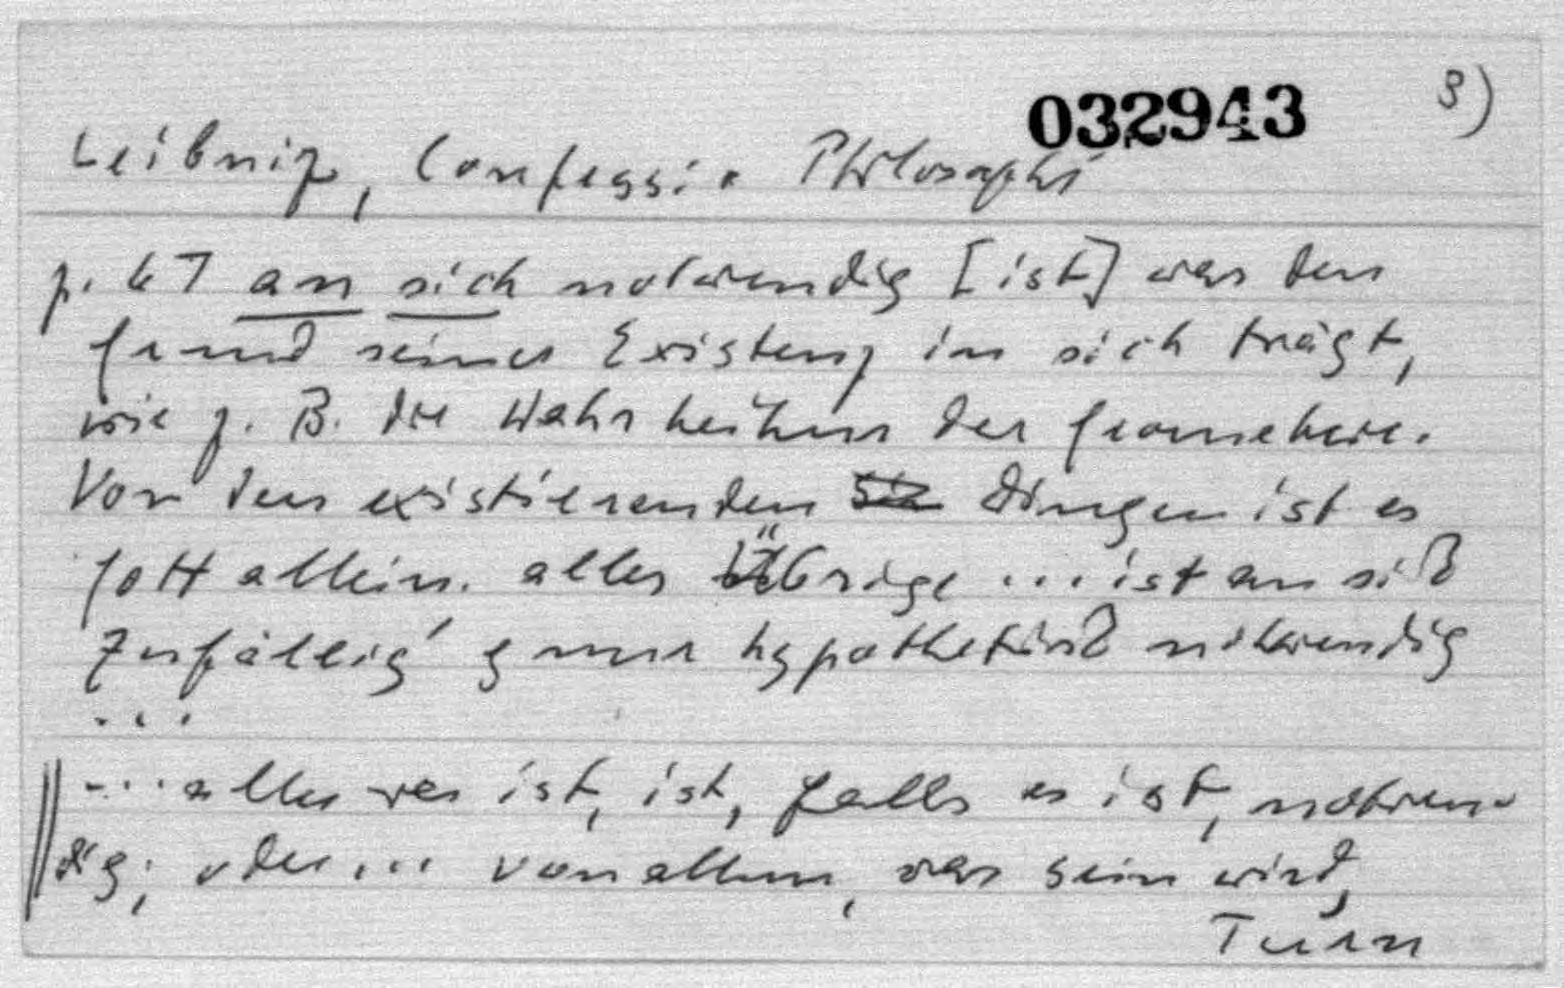 032943 3)
Leibniz, Confessio Philosophi
p. 67 an sich notwendig [ist] was den
Grund seiner Existenz in sich trägt,
wie z. B. die Wahrheiten der Geometrie.
Von den existierenden Dingen ist es
Gott allein. alles Übrige ... ist an sich
zufällig & nur hypothetisch notwendig
...
... alles was ist, ist, falls es ist, notwen-
dig; oder ... von allem, was sein wird,
Turn